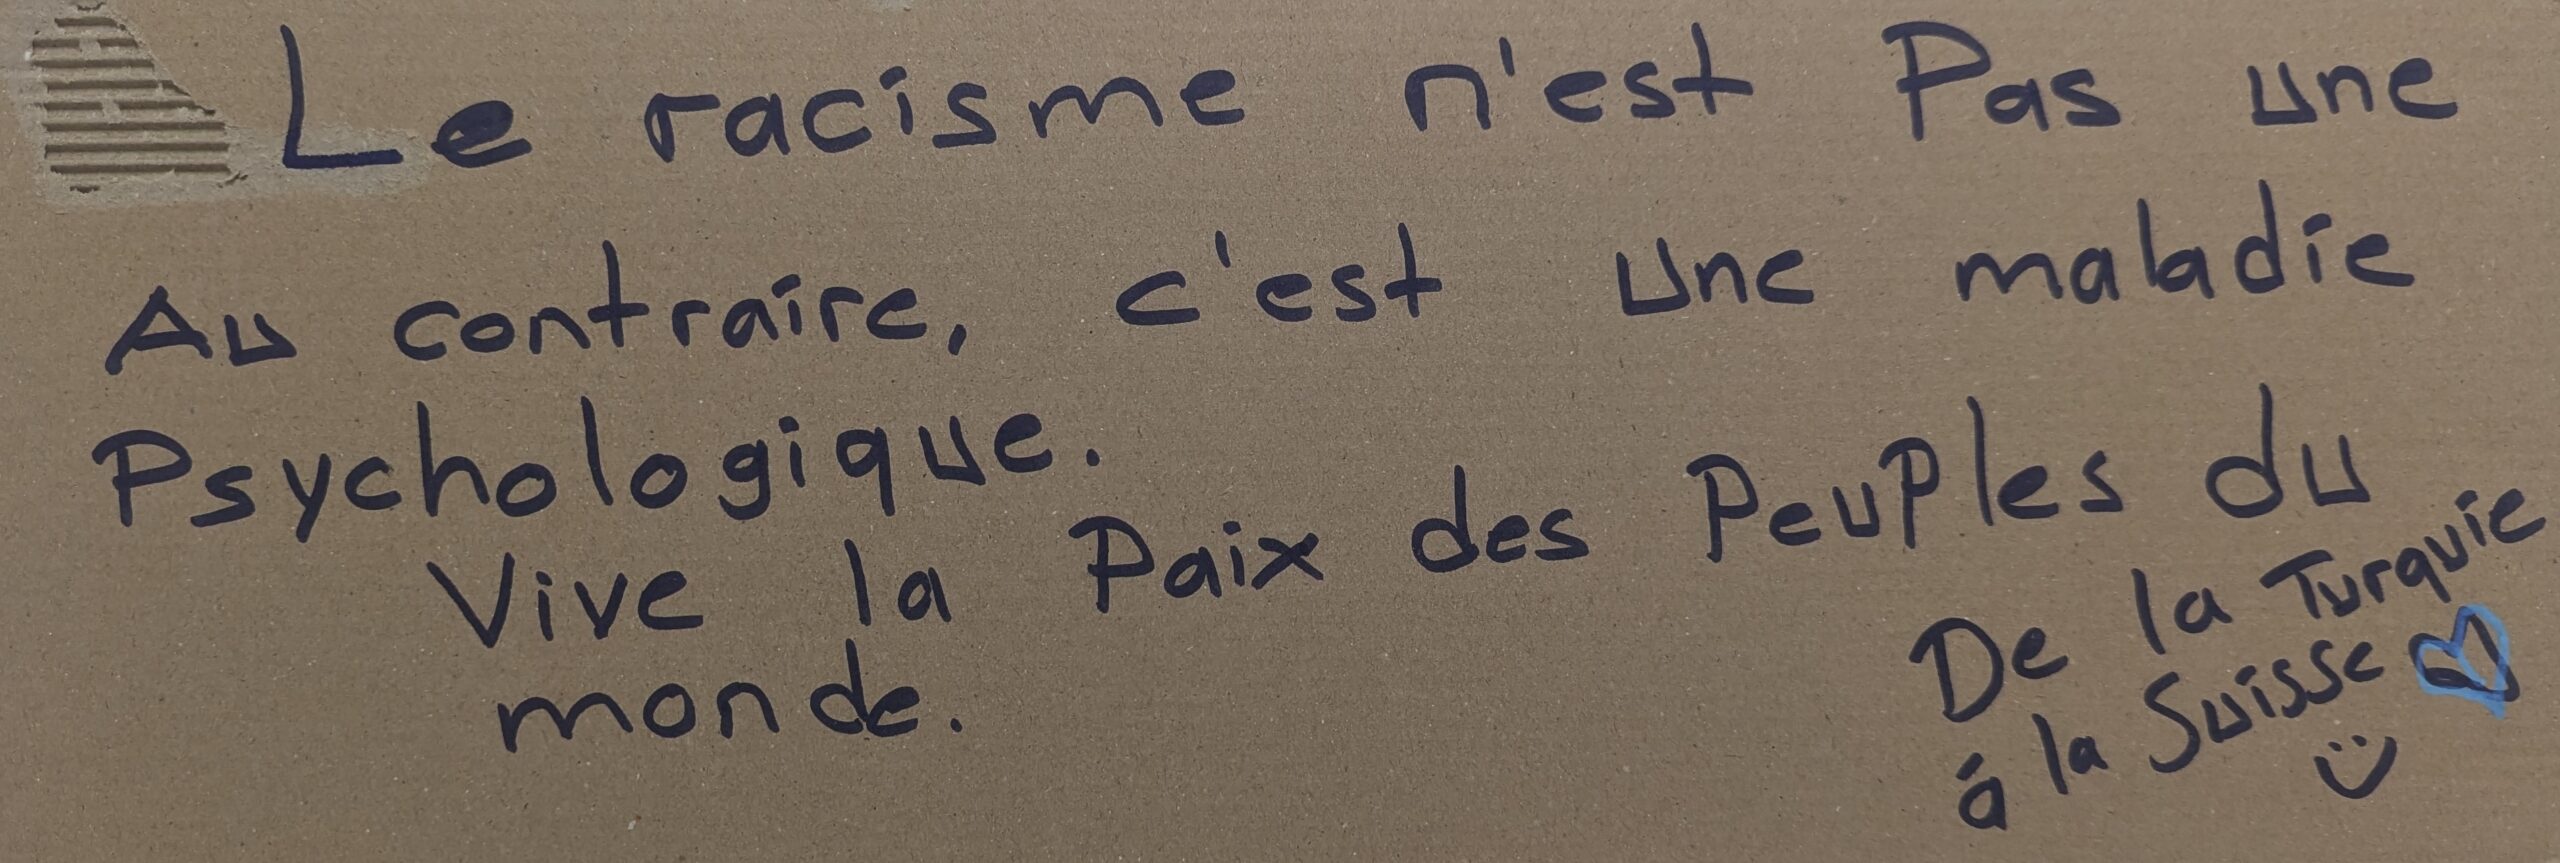 Le racisme n'est Pas une
Au contraire, c'est une maladie
Psychologique.
Vive la Paix des Peuples du
monde.
De la Turquie
á la Suisse